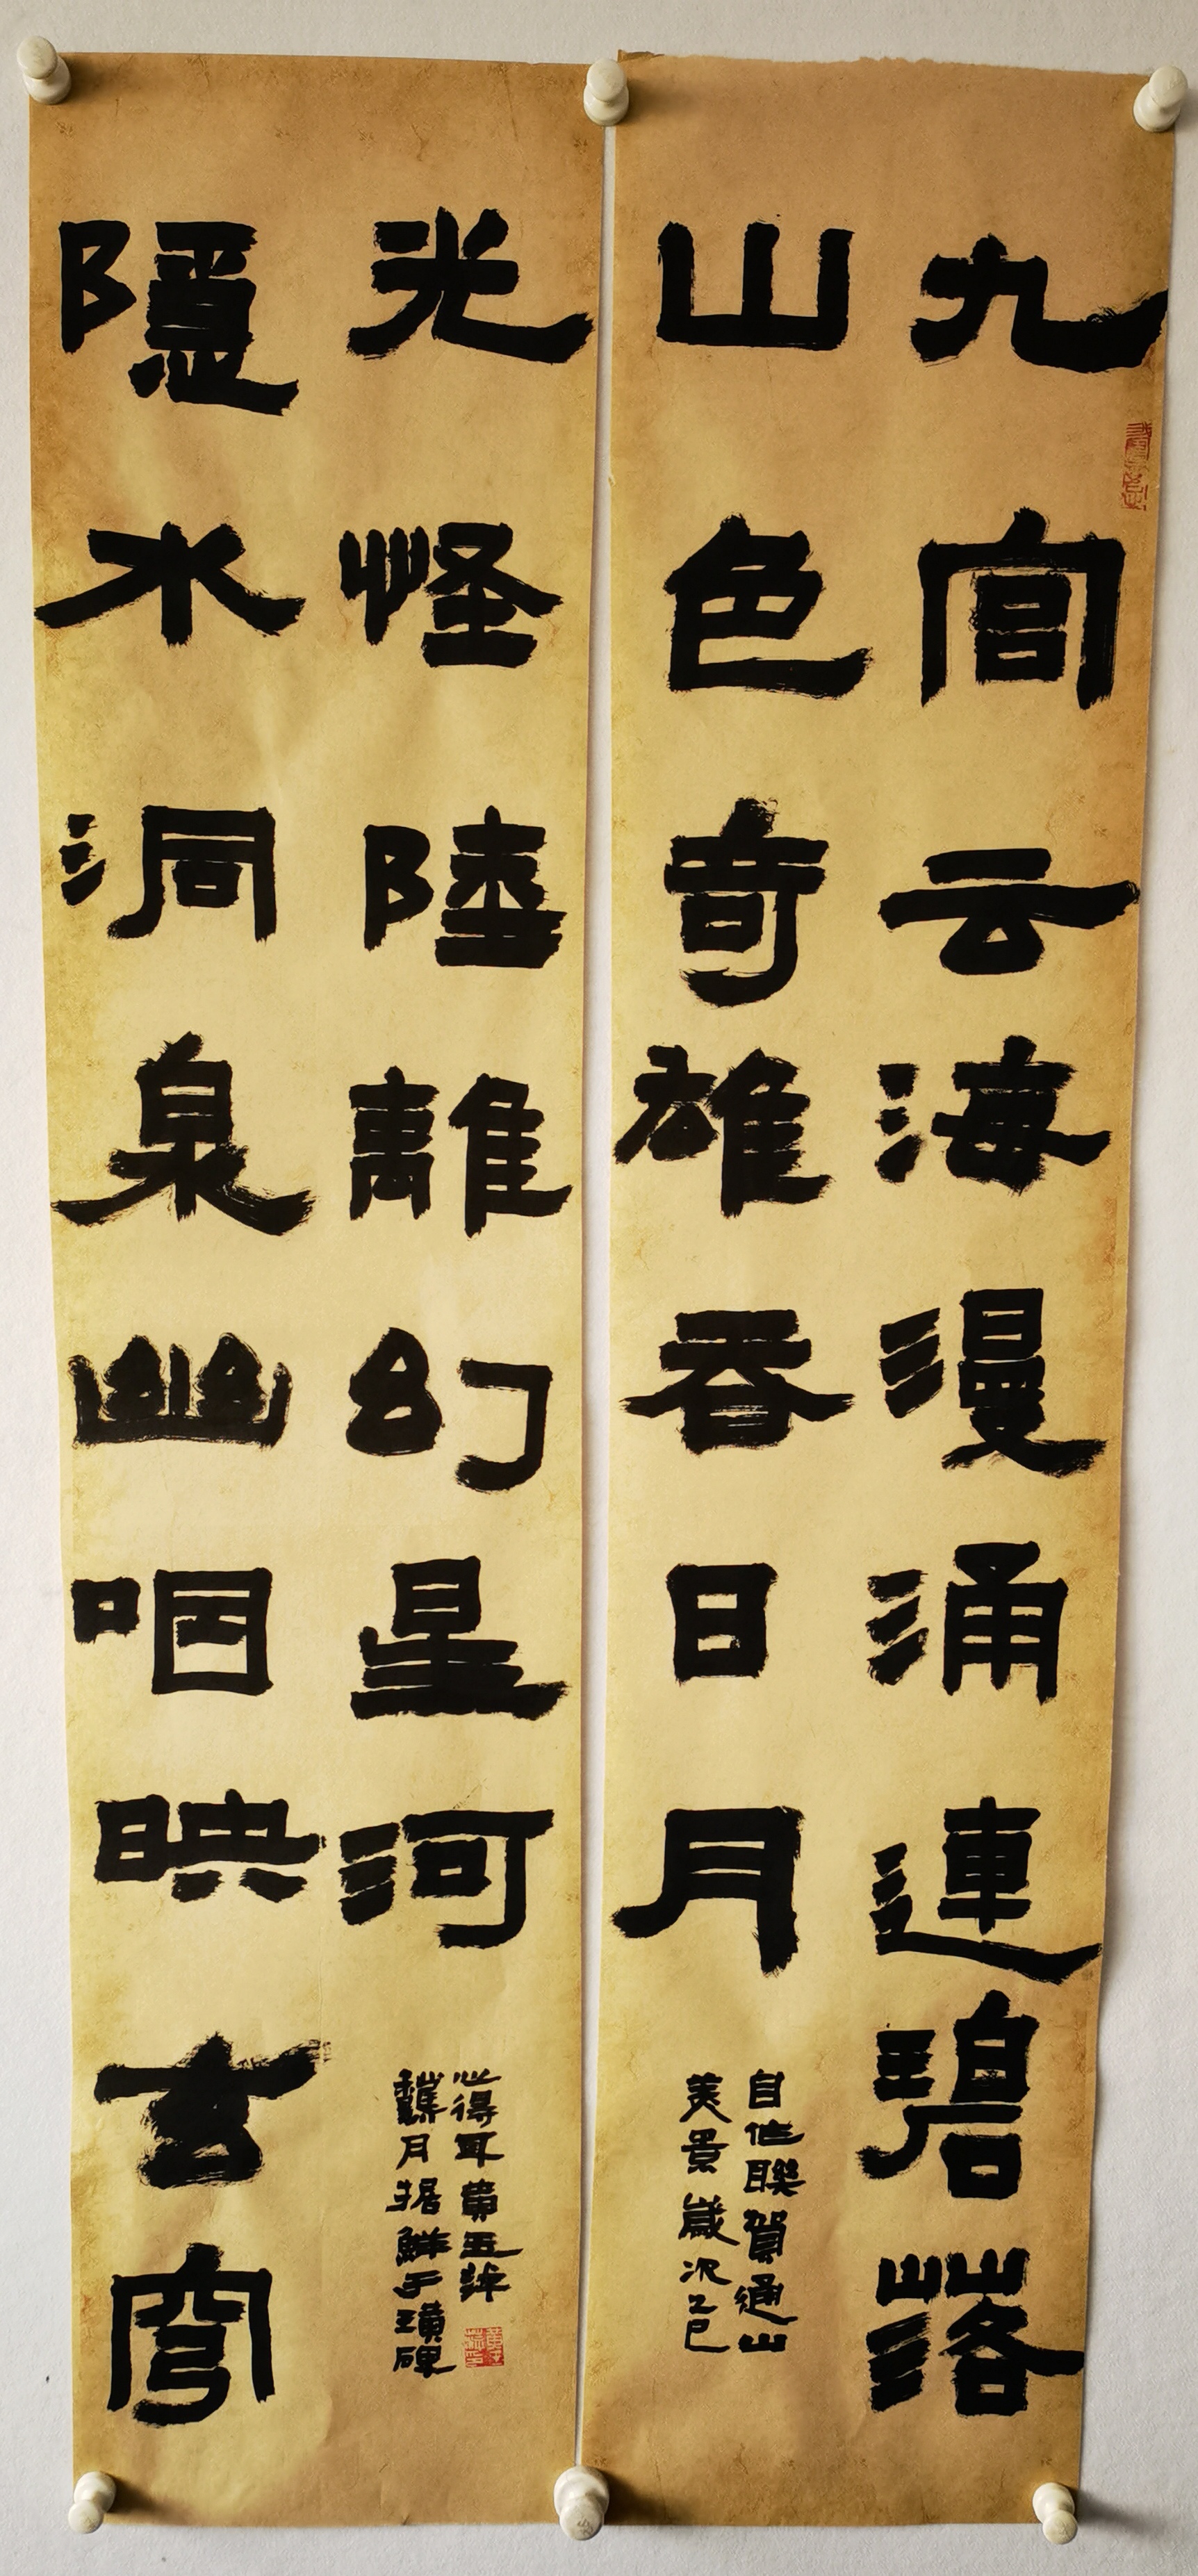 九宫云海漫涌連碧落
山色奇雄吞日月
自作聯賀通山
美景歲次乙巳
隱水洞泉幽咽映玄穹
光怪陸離幻星河
龝月据鮮于璜碑
心得耳黄五